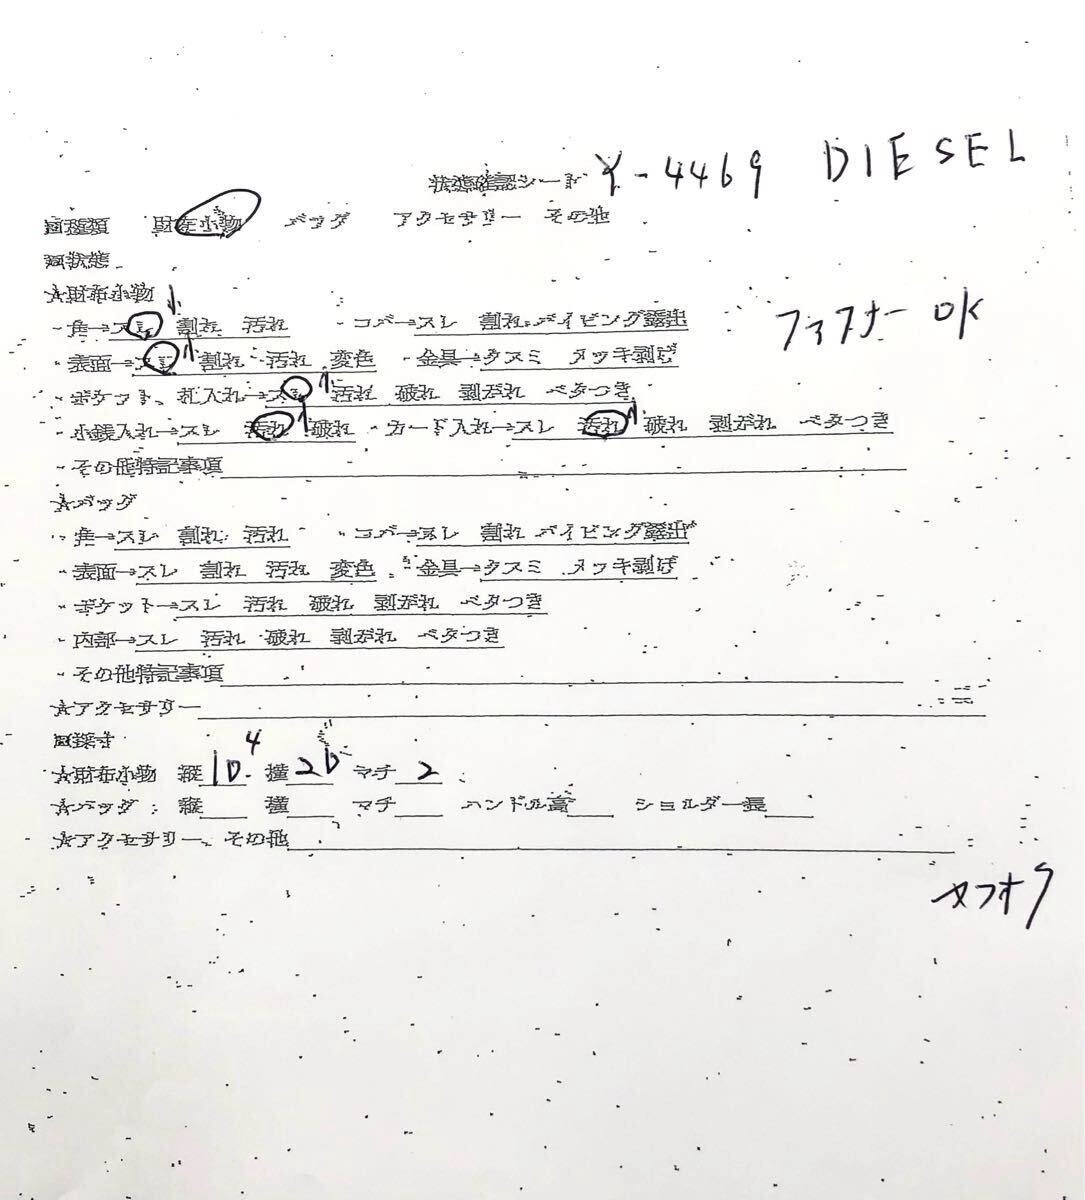 状態確認シート Y-4469 DIESEL
回種類 財布小物 バッグ アクセサリー その他
回状態
☆財布小物
・角→スレ 割れ 汚れ ・コバ→スレ 割れ パイピング露出
ファスナー OK
・表面→スレ 割れ 汚れ 変色 ・金具→クスミ メッキ剥げ
・ポケット、札入れ→スレ 汚れ 破れ 剥がれ ベタつき
・小銭入れ→スレ 汚れ 破れ ・カード入れ→スレ 汚れ 破れ 剥がれ ベタつき
・その他特記事項
☆バッグ
・角→スレ 割れ 汚れ ・コバ→スレ 割れ パイピング露出
・表面→スレ 割れ 汚れ 変色 ・金具→クスミ メッキ剥げ
・ポケット→スレ 汚れ 破れ 剥がれ ベタつき
・内部→スレ 汚れ 破れ 剥がれ ベタつき
・その他特記事項
☆アクセサリー
回採寸
☆財布小物 縦10.4 横20 マチ2
☆バッグ：縦 横 マチ ハンドル高 ショルダー長
☆アクセサリー、その他
ヤフオク